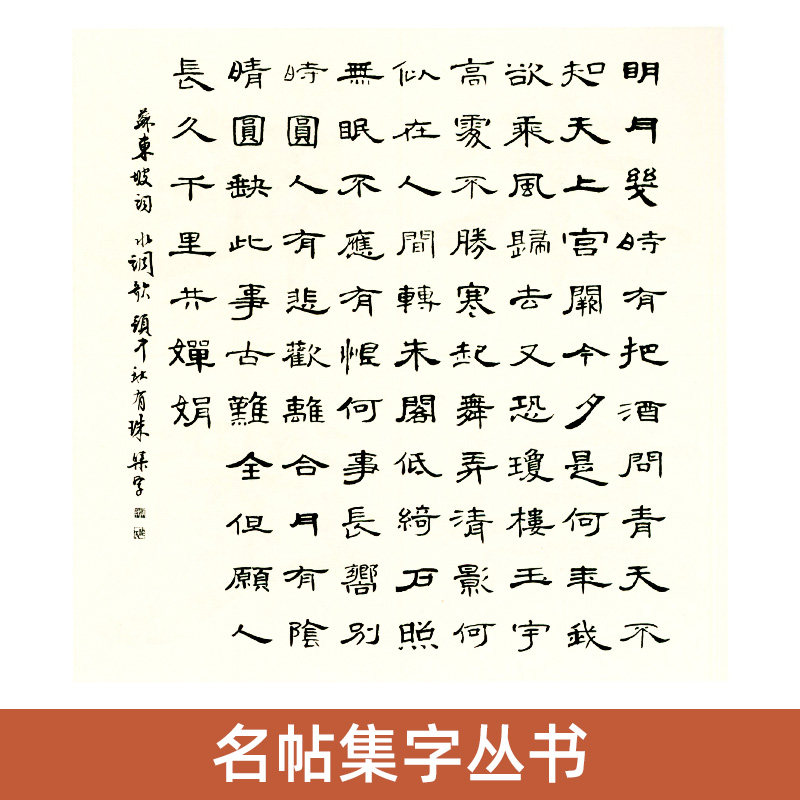 明月幾時有把酒問青天不
知天上宮闕今夕是何年我
欲乘風歸去又恐瓊樓玉宇
高處不勝寒起舞弄清影何
似在人間轉朱閣低綺戶照
無眠不應有恨何事長嚮別
時圓人有悲歡離合月有陰
晴圓缺此事古難全但願人
長久千里共嬋娟
蘇東坡詞 水調歌頭 有珠集字
名帖集字丛书